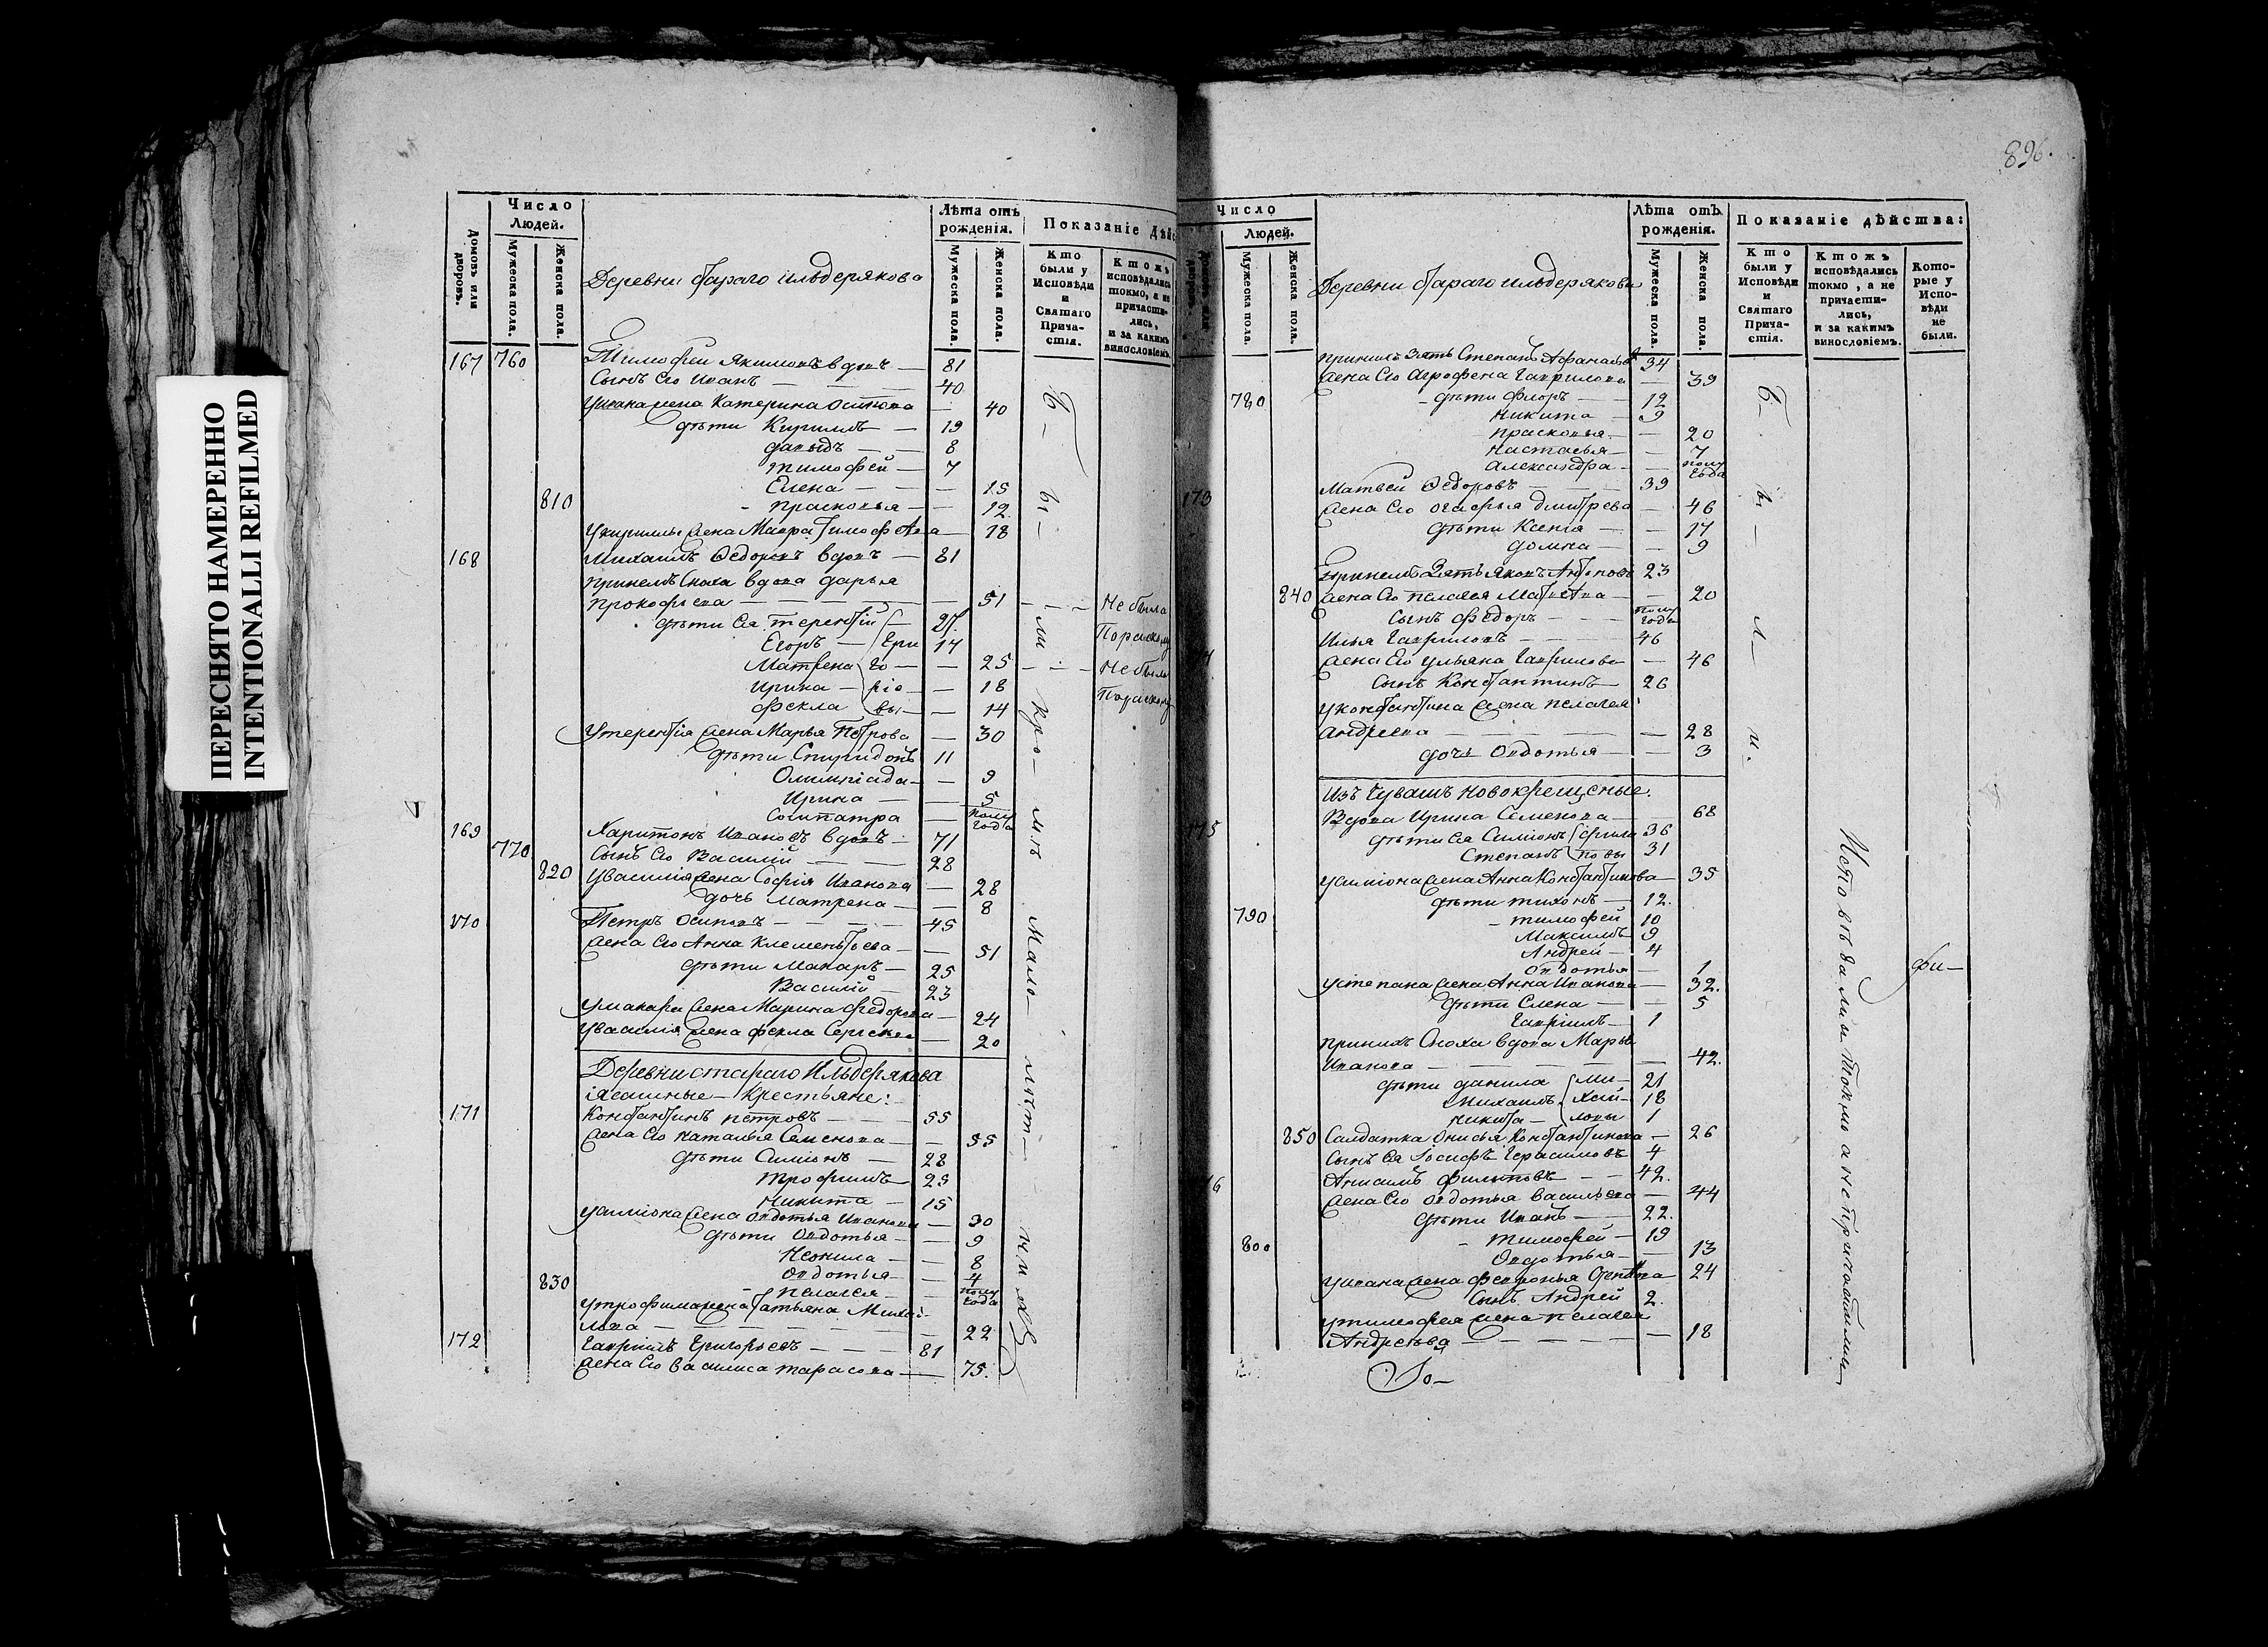 ПЕРЕСНЯТО НАМЕРЕННО
INTENTIONALLI REFILMED
Домовъ или дворовъ.
Число Людей.
Мужеска пола.
Женска пола.
Деревни стараго ильдерякова
Лѣта отъ рожденія.
Мужеска пола.
Женска пола.
Показаніе дѣйс
Кто были у Исповѣди и Святаго Прича-стія.
Ктожъ исповѣдались токмо, а не причасти-лись, и за какимъ винословіемъ.
167 760 Тимофеи Якимовъ вдовъ — 81
Сынъ его Иванъ — 40
Уивана жена Катерина Осипова — 40
дѣти Кирилъ — 19
давыдъ — 8
тимофей — 7
Елена — 15
810 прасковья — 12
Укирилы жена Мавра — 18
168 Михаилъ Ѳедоровъ вдовъ — 81
Сноха вдова дарья
прокофьева — 51 Небыла
дѣти ея терентій — 27
Егоръ — 14
Матрена — 25 Небыла
Ирина — 18
Фекла — 14
Утерентія жена Марья Петрова — 30
дѣти Спиридонъ 11
Олимпіада — 9
Ирина — 5
Сосипатра — полу года
169 Харитонъ Ивановъ вдовъ — 71
770 Сынъ его Василій — 28
820 Увасилия жена Софія Иванова — 28
дочь Матрена — 8
170 Петръ Осиповъ — 45
жена его Анна Клементьева — 51
дѣти Макаръ — 25
Василій — 23
Умакара жена Марина Федорова — 24
Увасилія жена фекла Сергеева — 20
Деревни стараго Ильдерякова
ясашные — Крестьяне:
171 Константинъ петровъ — 55
жена его наталья Семенова — 55
дѣти Симіонъ — 28
трофимъ — 25
Никита — 15
Усиміона жена Овдотья Иванова — 30
дѣти Овдотья — 9
Неонила — 8
Овдотья — 4
830 пелагея — полу года
Утрофима жена Татьяна Михай-
лова — 22
172 Гавріилъ Григорьевъ — 81
жена его василиса тарасова — 75.
896.
Число Людей.
Мужеска пола.
Женска пола.
Деревни стараго ильдерякова
Лѣта отъ рожденія.
Мужеска пола.
Женска пола.
Показаніе дѣйства:
Кто были у Исповѣди и Святаго Прича-стія.
Ктожъ исповѣдались токмо, а не причасти-лись, и за какимъ винословіемъ.
Кото-рые у Испо-вѣди не были.
Зять Степанъ 34
жена его Агрофена Гаврилова — 39
780 дѣти Флоръ — 12
Никита — 9
прасковья — 20
Настасья — 7
Александра — полу года
173 Матвей Ѳедоровъ — 39
жена его огафья дмитрева — 46
дѣти Ксенія — 17
домна — 9
Зять Яковъ Антоновъ 23
840 жена его пелагея — 20
Сынъ Федоръ — полу года
Илья Гавриловъ — 46
жена его ульяна Гаврилова — 46
Сынъ Константинъ — 26
Уконстантина жена пелагея
андреева — 28
дочь Овдотья — 3
Изъ Чувашъ новокрещеные.
175 Вдова Ирина Семенова — 68
дѣти ея Симіонъ 36
Степанъ 31
Усиміона жена Анна Константинова — 35
дѣти тихонъ — 12.
790 тимофей 10
Максимъ 9
Андрей — 4
Овдотья — 1
Устепана жена Анна Иванова — 32.
дѣти Елена — 5
Гавріилъ — 1
Сноха вдова Марья
Иванова — 42.
дѣти данила 21
Михаилъ 18
Никита — 1
850 Салдатка Онисья Константинова — 26
Сынъ ея Іосифъ Герасимовъ 4
Анисимъ Филиповъ — 42.
жена его овдотья васильева — 44
дѣти Иванъ — 22.
800 тимофей — 19
Овдотья — 13
Уивана жена февронья — 24
Сынъ Андрей 2.
Утимофея жена пелагея
Андреева — 18